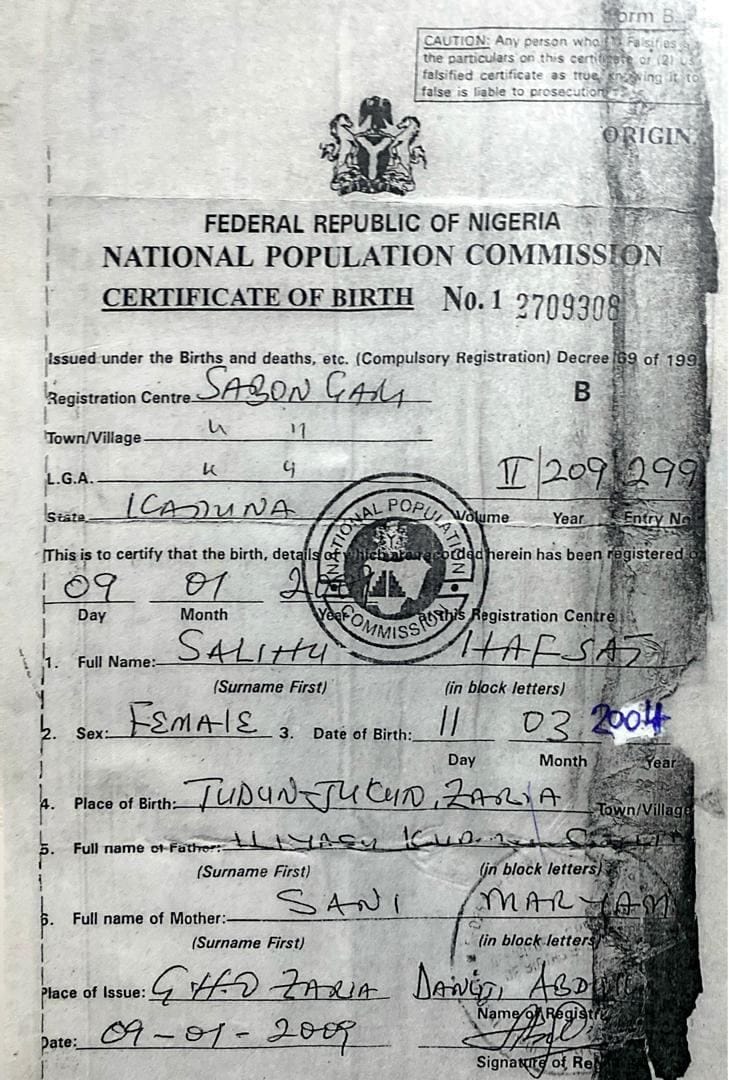 Form B
CAUTION: Any person who (1) Falsifies
the particulars on this certificate or (2) us
falsified certificate as true, knowing it to
false is liable to prosecution
ORIGIN
FEDERAL REPUBLIC OF NIGERIA
NATIONAL POPULATION COMMISSION
CERTIFICATE OF BIRTH No. 1 2709308
Issued under the Births and deaths, etc. (Compulsory Registration) Decree 69 of 199
Registration Centre SABON GARI B
Town/Village " "
L.G.A. " "
II 209 299
State KADUNA Volume Year Entry No
NATIONAL POPULATION COMMISSION
This is to certify that the birth, details of which are recorded herein has been registered
09 01
Day Month Year this Registration Centre
1. Full Name: SALIHU HAFSAT
(Surname First) (in block letters)
2. Sex: FEMALE 3. Date of Birth: 11 03 2004
Day Month Year
4. Place of Birth: TUDUN-JUKUN, ZARIA Town/Village
5. Full name of Father:
(Surname First) (in block letters)
6. Full name of Mother: SANI MARYAM
(Surname First) (in block letters)
Place of Issue: GHD ZARIA
Name of Registr
Date: 09-01-2009
Signature of Re